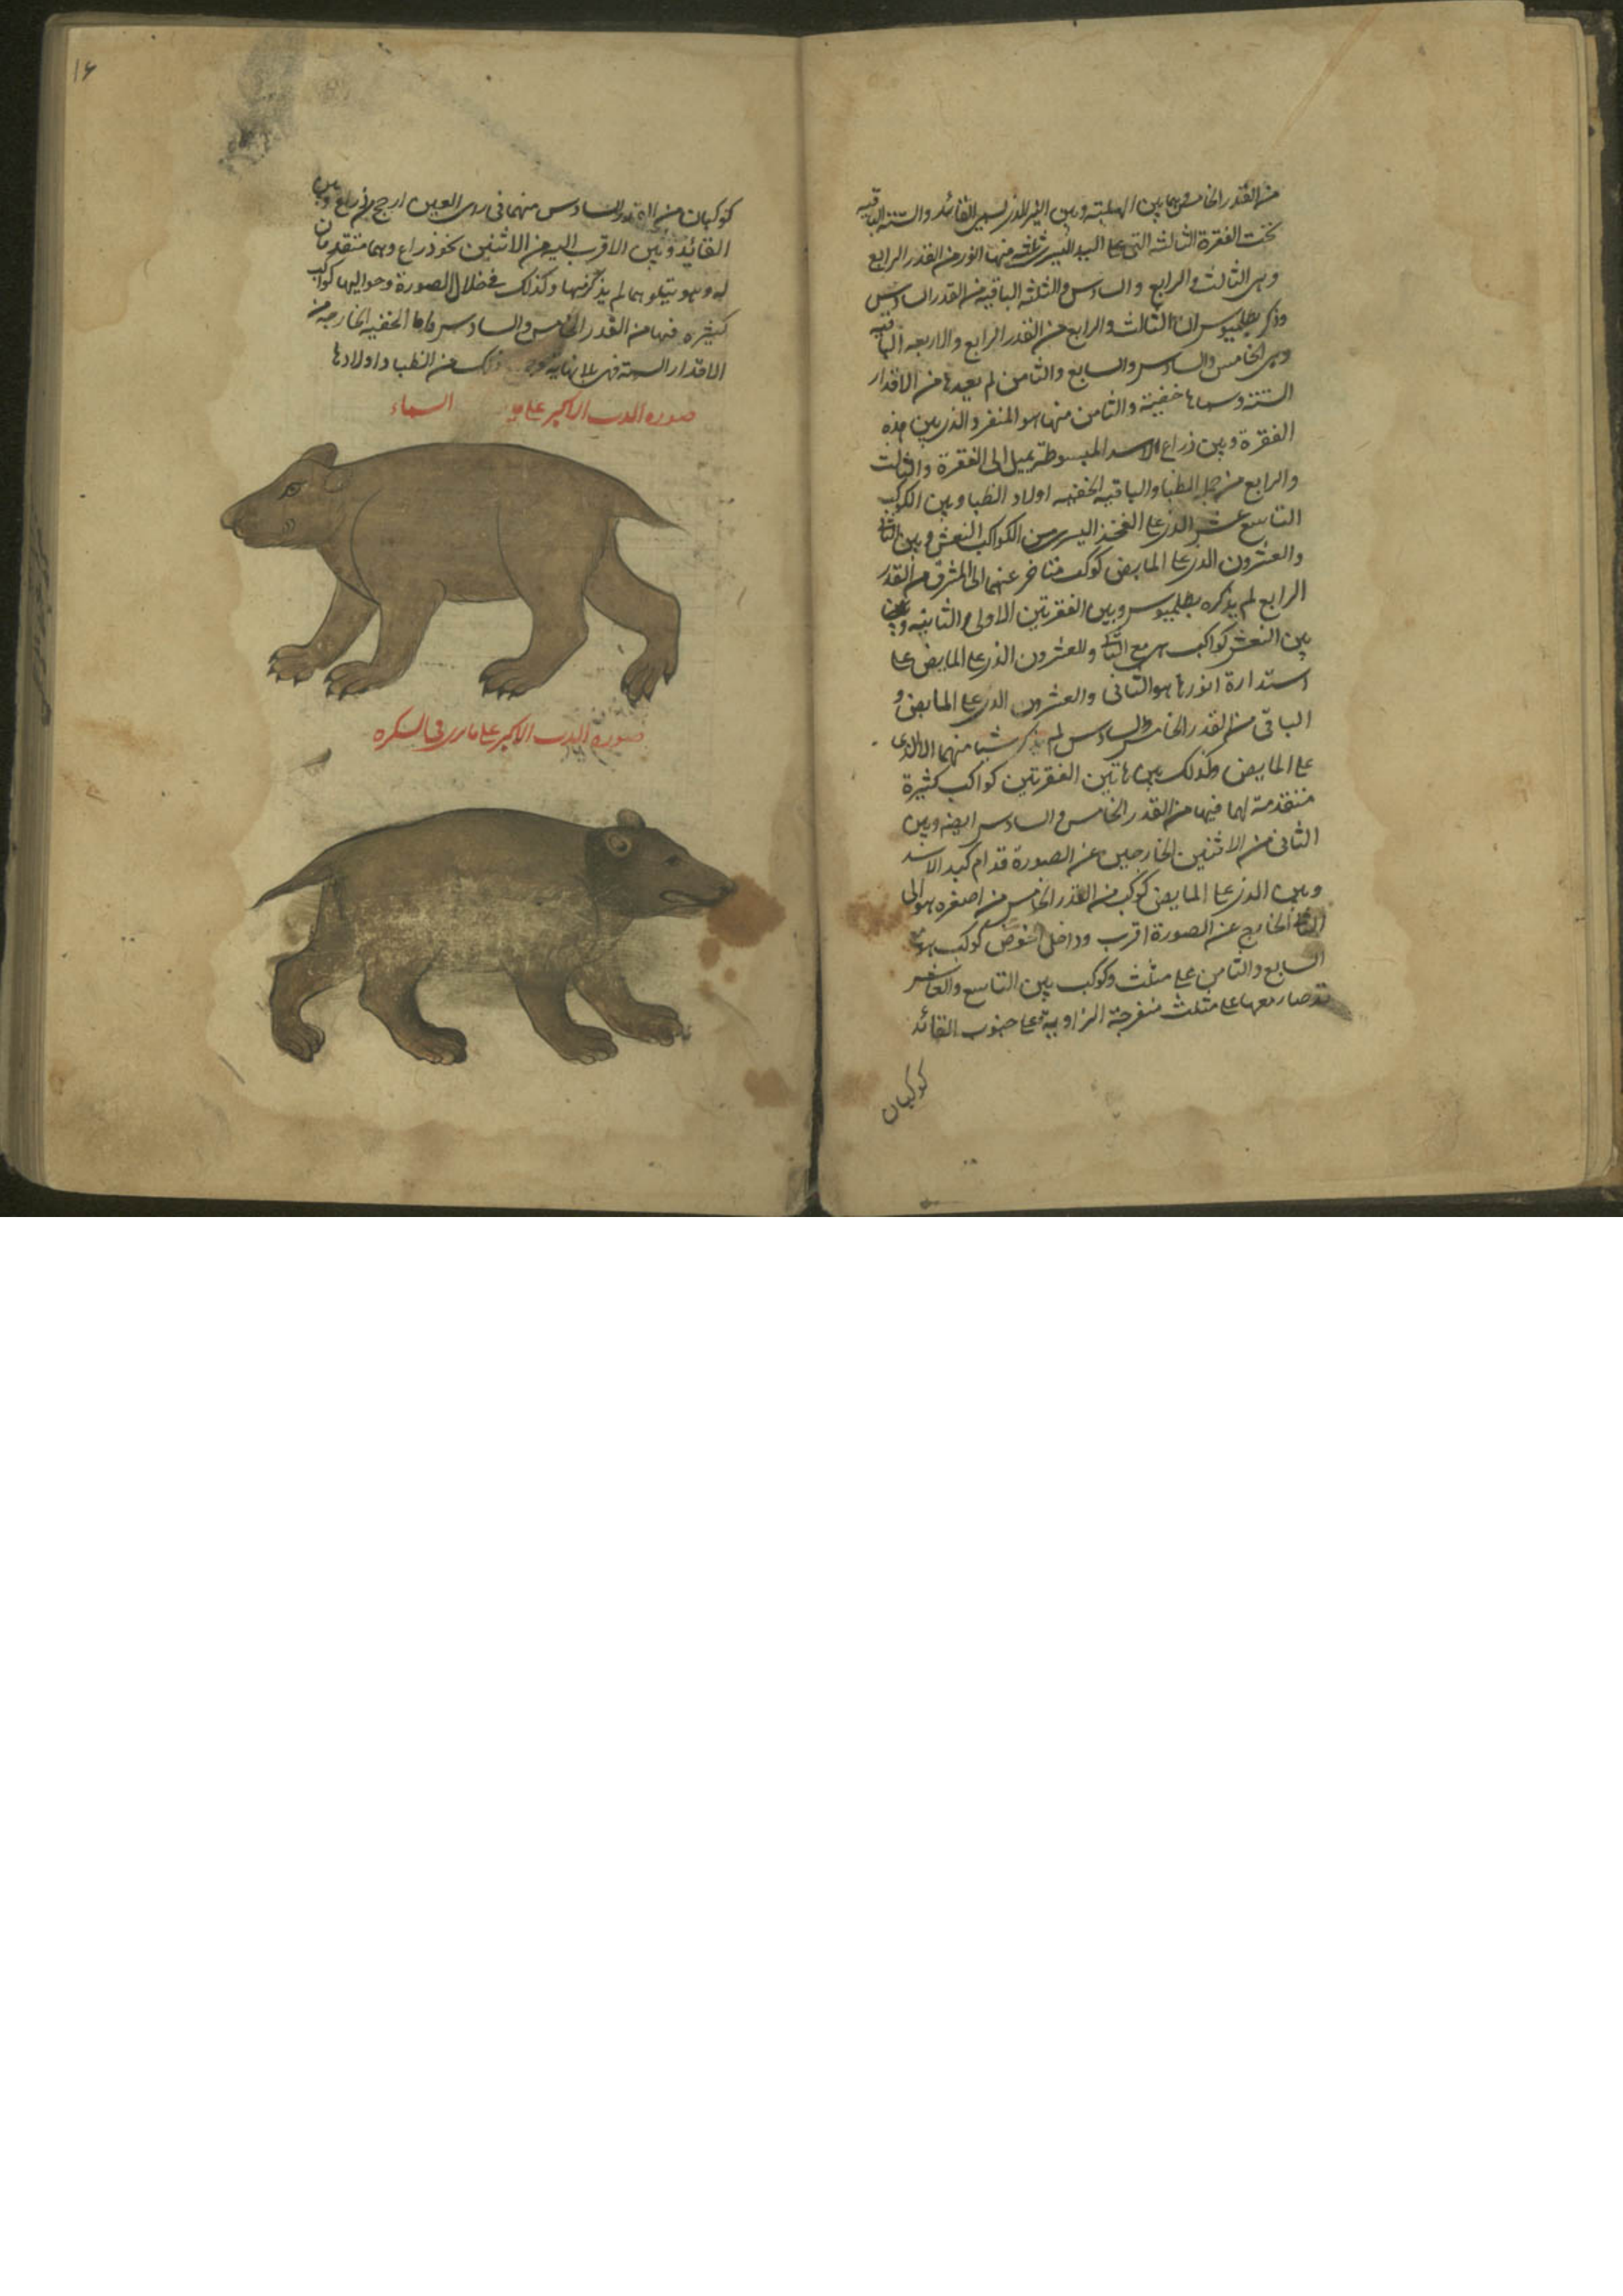 من القدر الخامس فيما بين الهلبة وبين النير الذي يسمى القائد والستة الباقية
تحت الفقرة الثالثة التي على اليد اليسرى ثلثة منها انور من القدر الرابع
وهي الثالث والرابع والسادس والثلثة الباقية من القدر السادس
وذكر بطلميوس ان الثالث والرابع من القدر الرابع والاربعة الباقية
وهي الخامس والسادس والسابع والثامن لم يعدها من الاقدار
الستة وسماها خفية والثامن منها هو المنفرد الذي بين هذه
الفقرة وبين ذراع الاسد المبسوطة يميل الى الفقرة والثالث
والرابع من جملة الظبا والباقية الخفية اولاد الظبا وبين الكوكب
التاسع عشر الذي على الفخذ اليسرى من الكواكب النعش وبين
والعشرون الذي على المابض كوكب متاخر عنهما الى المشرق من القدر
الرابع لم يذكره بطلميوس وبين الفقرتين الاولى والثانية
بين النعش كواكب هي مع والعشرون الذي على المابض على
استدارة انورها هو الثاني والعشرون الذي على المابض و
الباقي من القدر الخامس والسادس لم يذكر شيا منهما الا الذي
على المابض وكذلك بين هاتين الفقرتين كواكب كثيرة
متقدمة لهما فيها من القدر الخامس والسادس ايضه وبين
الثاني من الاثنين الخارجين عن الصورة قدام كبد الاسد
وبين الذي على المابض كوكب من القدر الخامس من اصغره هو الى
الخارج عن الصورة اقرب وداخل الحوض كوكب هو مع
السابع والثامن على مثلث وكوكب بين التاسع والعاشر
قد صار معها على مثلث منفرجة الزاوية وعلى جنوب القائد
كوكبان
١٦
كوكبان من القدر السادس منهما في راى العين ارجح من ذراع وبين
القائد وبين الاقرب اليه من الاثنين نحو ذراع وهما متقدمان
له وهو يتلوهما لم يذكرهما وكذلك في خلال الصورة وحواليها كواكب
كثيرة فيها من القدر الخامس والسادس واما الخفية الخارجة من
الاقدار الستة فهي بلا نهاية ذلك من الظبا واولادها
صورة الدب الاكبر على السماء
صورة الدب الاكبر على ما يرى في الكرة